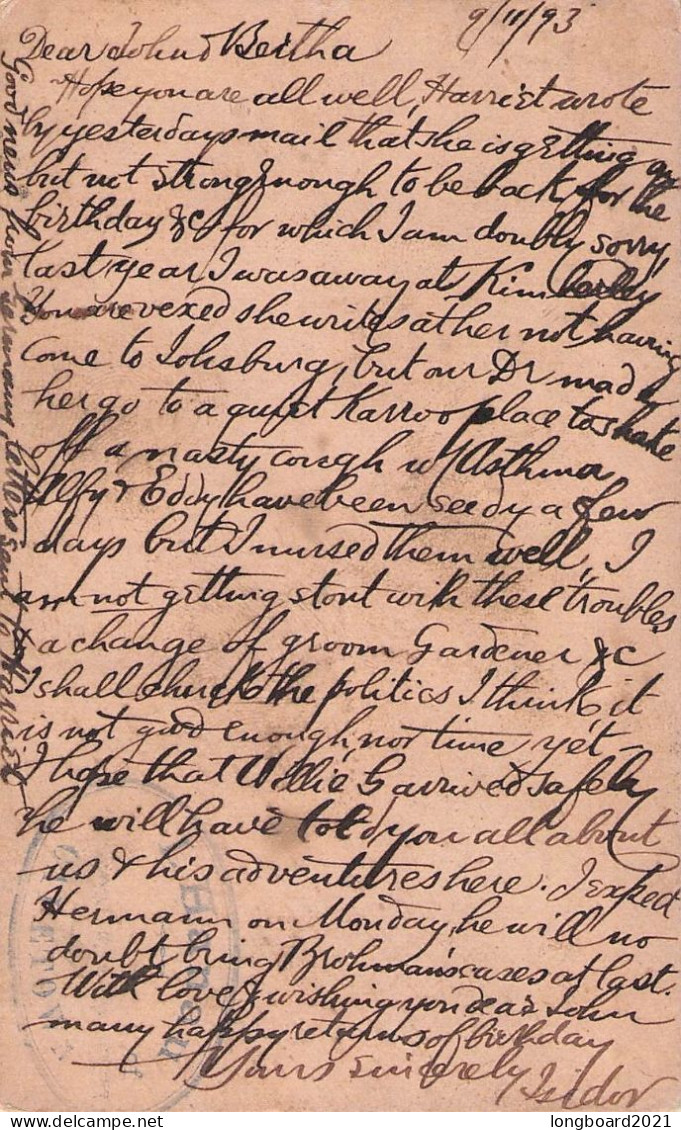 9/11/93
Dear John & Bertha
Hope you are all well, Harriet wrote
by yesterdays mail that she is getting on
but not strong enough to be back for the
birthday &c for which I am doubly sorry,
last year I was away at Kimberley
You are vexed she writes at her not having
come to Johsburg, but our Dr made
her go to a quiet Karroo place to shake
off a nasty cough w/ Asthma
Alfy & Eddy have been seedy a few
days but I nursed them well, I
am not getting stout with these troubles
& a change of groom Gardener &c
I shall chuck the politics I think, it
is not good enough, nor time yet –
I hope that Willie G arrived safely
he will have told you all about
us & his adventures here. I expect
Hermann on Monday, he will no
doubt bring Brohman's cases at last.
With love & wishing you dear John
many happy returns of birthday
Yours sincerely Isidor
Good news from Germany, letters sent to Harriet
longboard2021